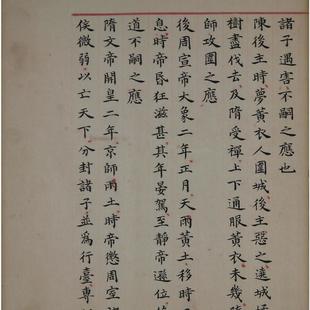 諸子遇害不嗣之應也
陳後主時夢黃衣人圍城後主惡之遶城橘
樹盡伐去及隋受禪上下通服黃衣未幾隋
師攻圍之應
後周宣帝大象二年正月天雨黃土移時
息時帝昏狂滋甚其年晏駕至靜帝遜位
道不嗣之應
隋文帝開皇二年京師雨土時帝懲周室諸
侯微弱以亡天下分封諸子並為行臺專